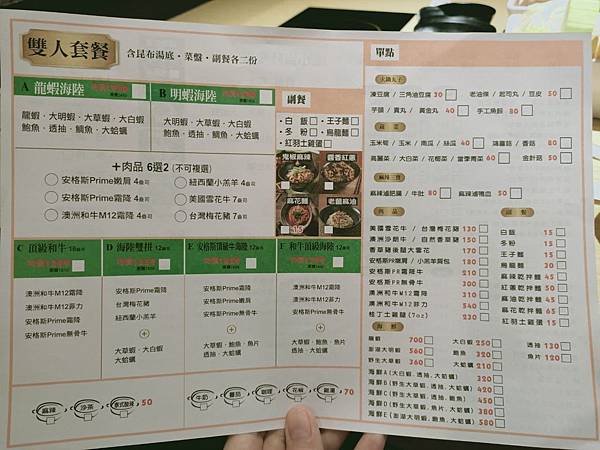 雙人套餐 含昆布湯底・菜盤・副餐各二份
A 龍蝦海陸
龍蝦．大明蝦．大草蝦．大白蝦
鮑魚．透抽．鯛魚．大蛤蠣
B 明蝦海陸
大明蝦．大草蝦．大白蝦
鮑魚．透抽．大蛤蠣
＋肉品 6選2 (不可複選)
安格斯Prime嫩肩 4盎司
安格斯Prime霜降 4盎司
澳洲和牛M12霜降 4盎司
紐西蘭小羔羊 4盎司
美國雪花牛 7盎司
台灣梅花豬 7盎司
副餐
白飯 王子麵
冬粉 烏龍麵
紅羽土雞蛋
鬼椒麻辣 醬香紅蔥
麻花麵 老薑麻油
+15
C 頂級和牛 16盎司
澳洲和牛M12霜降
澳洲和牛M12菲力
安格斯Prime霜降
安格斯Prime無骨牛
D 海陸雙拼 12盎司
安格斯Prime霜降
台灣梅花豬
紐西蘭小羔羊
+
大草蝦．大白蝦
大蛤蠣
E 安格斯頂級牛海陸 12盎司
安格斯Prime霜降
安格斯Prime嫩肩
安格斯Prime無骨牛
+
大草蝦．鮑魚．魚片
透抽．大蛤蠣
F 和牛頂級海陸 12盎司
澳洲和牛M12霜降
澳洲和牛M12菲力
安格斯Prime無骨牛
+
大草蝦．鮑魚．魚片
透抽．大蛤蠣
麻辣 沙茶 泰式酸辣 50
牛奶 番茄 咖哩 花椒 雞湯 70
單點
火鍋丸子
凍豆腐 / 三角油豆腐 30 老油條 / 起司丸 / 豆皮 50
芋頭 / 貢丸 / 黃金丸 40 手工魚餃 80
蔬菜
玉米筍 / 玉米 / 南瓜 / 絲瓜 40 鴻喜菇 / 香菇 80
高麗菜 / 大白菜 / 花椰菜 / 當季青菜 60 金針菇 50
麻辣三寶
麻辣滷肥腸 / 牛肚 80 麻辣滷鴨血 50
肉品
美國雪花牛 / 台灣梅花豬 130
澳洲沙朗牛 / 自然香草豬 150
香草豬後腿大霜花 170
安格斯PR嫩肩 / 小羔羊肩包 180
安格斯PR霜降牛 210
安格斯PR無骨牛 300
澳洲和牛M12霜降 310
澳洲和牛M12菲力 540
桂丁土雞腿(7oz) 230
副餐
白飯 15
冬粉 15
王子麵 15
烏龍麵 30
麻辣乾拌麵 45
紅蔥乾拌麵 50
麻油乾拌麵 45
麻花乾拌麵 65
紅羽土雞蛋 15
海鮮
龍蝦 700 大白蝦 250 透抽 130
澎湖大明蝦 560 鮑魚 320 魚片 120
野生大草蝦 360 大蛤蠣 210
海鮮A(大白蝦,透抽,大蛤蠣) 320
海鮮B(野生大草蝦,透抽,大蛤蠣) 420
海鮮C(野生大草蝦,透抽,鮑魚) 450
海鮮D(野生大草蝦,魚片,大蛤蠣) 380
海鮮E(澎湖大明蝦,鮑魚,大蛤蠣) 580